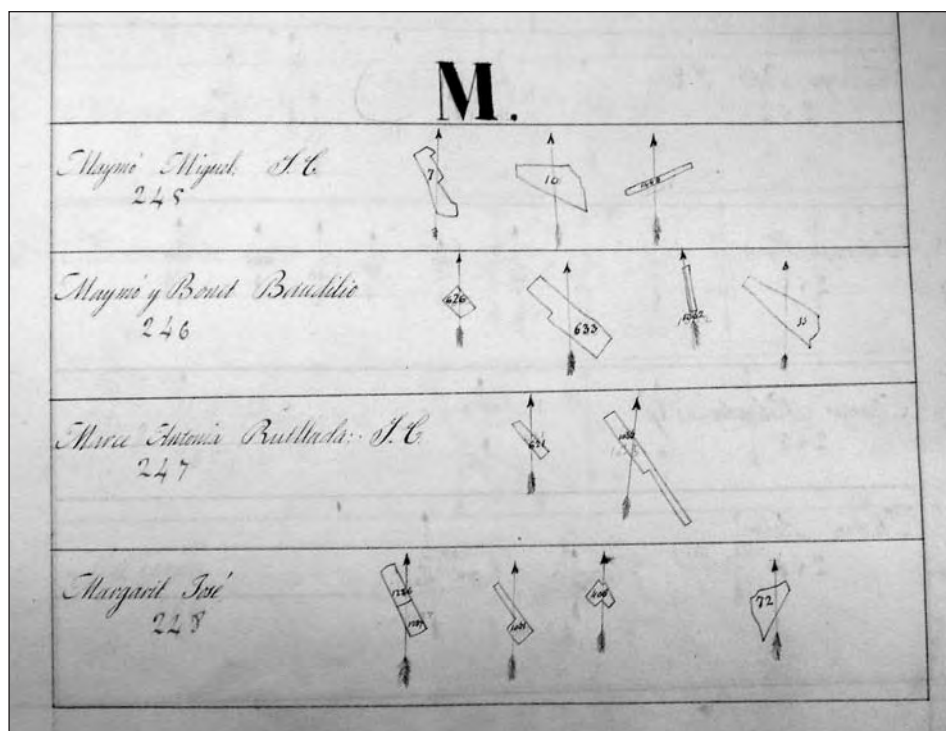 M.
Maymó Miguel: S. C.
245
7
10
Maymó y Bonet Baudilio
246
626
633
1062
33
Marce Antonia Rubllada: S. C.
247
631
Margarit José
248
1226
72